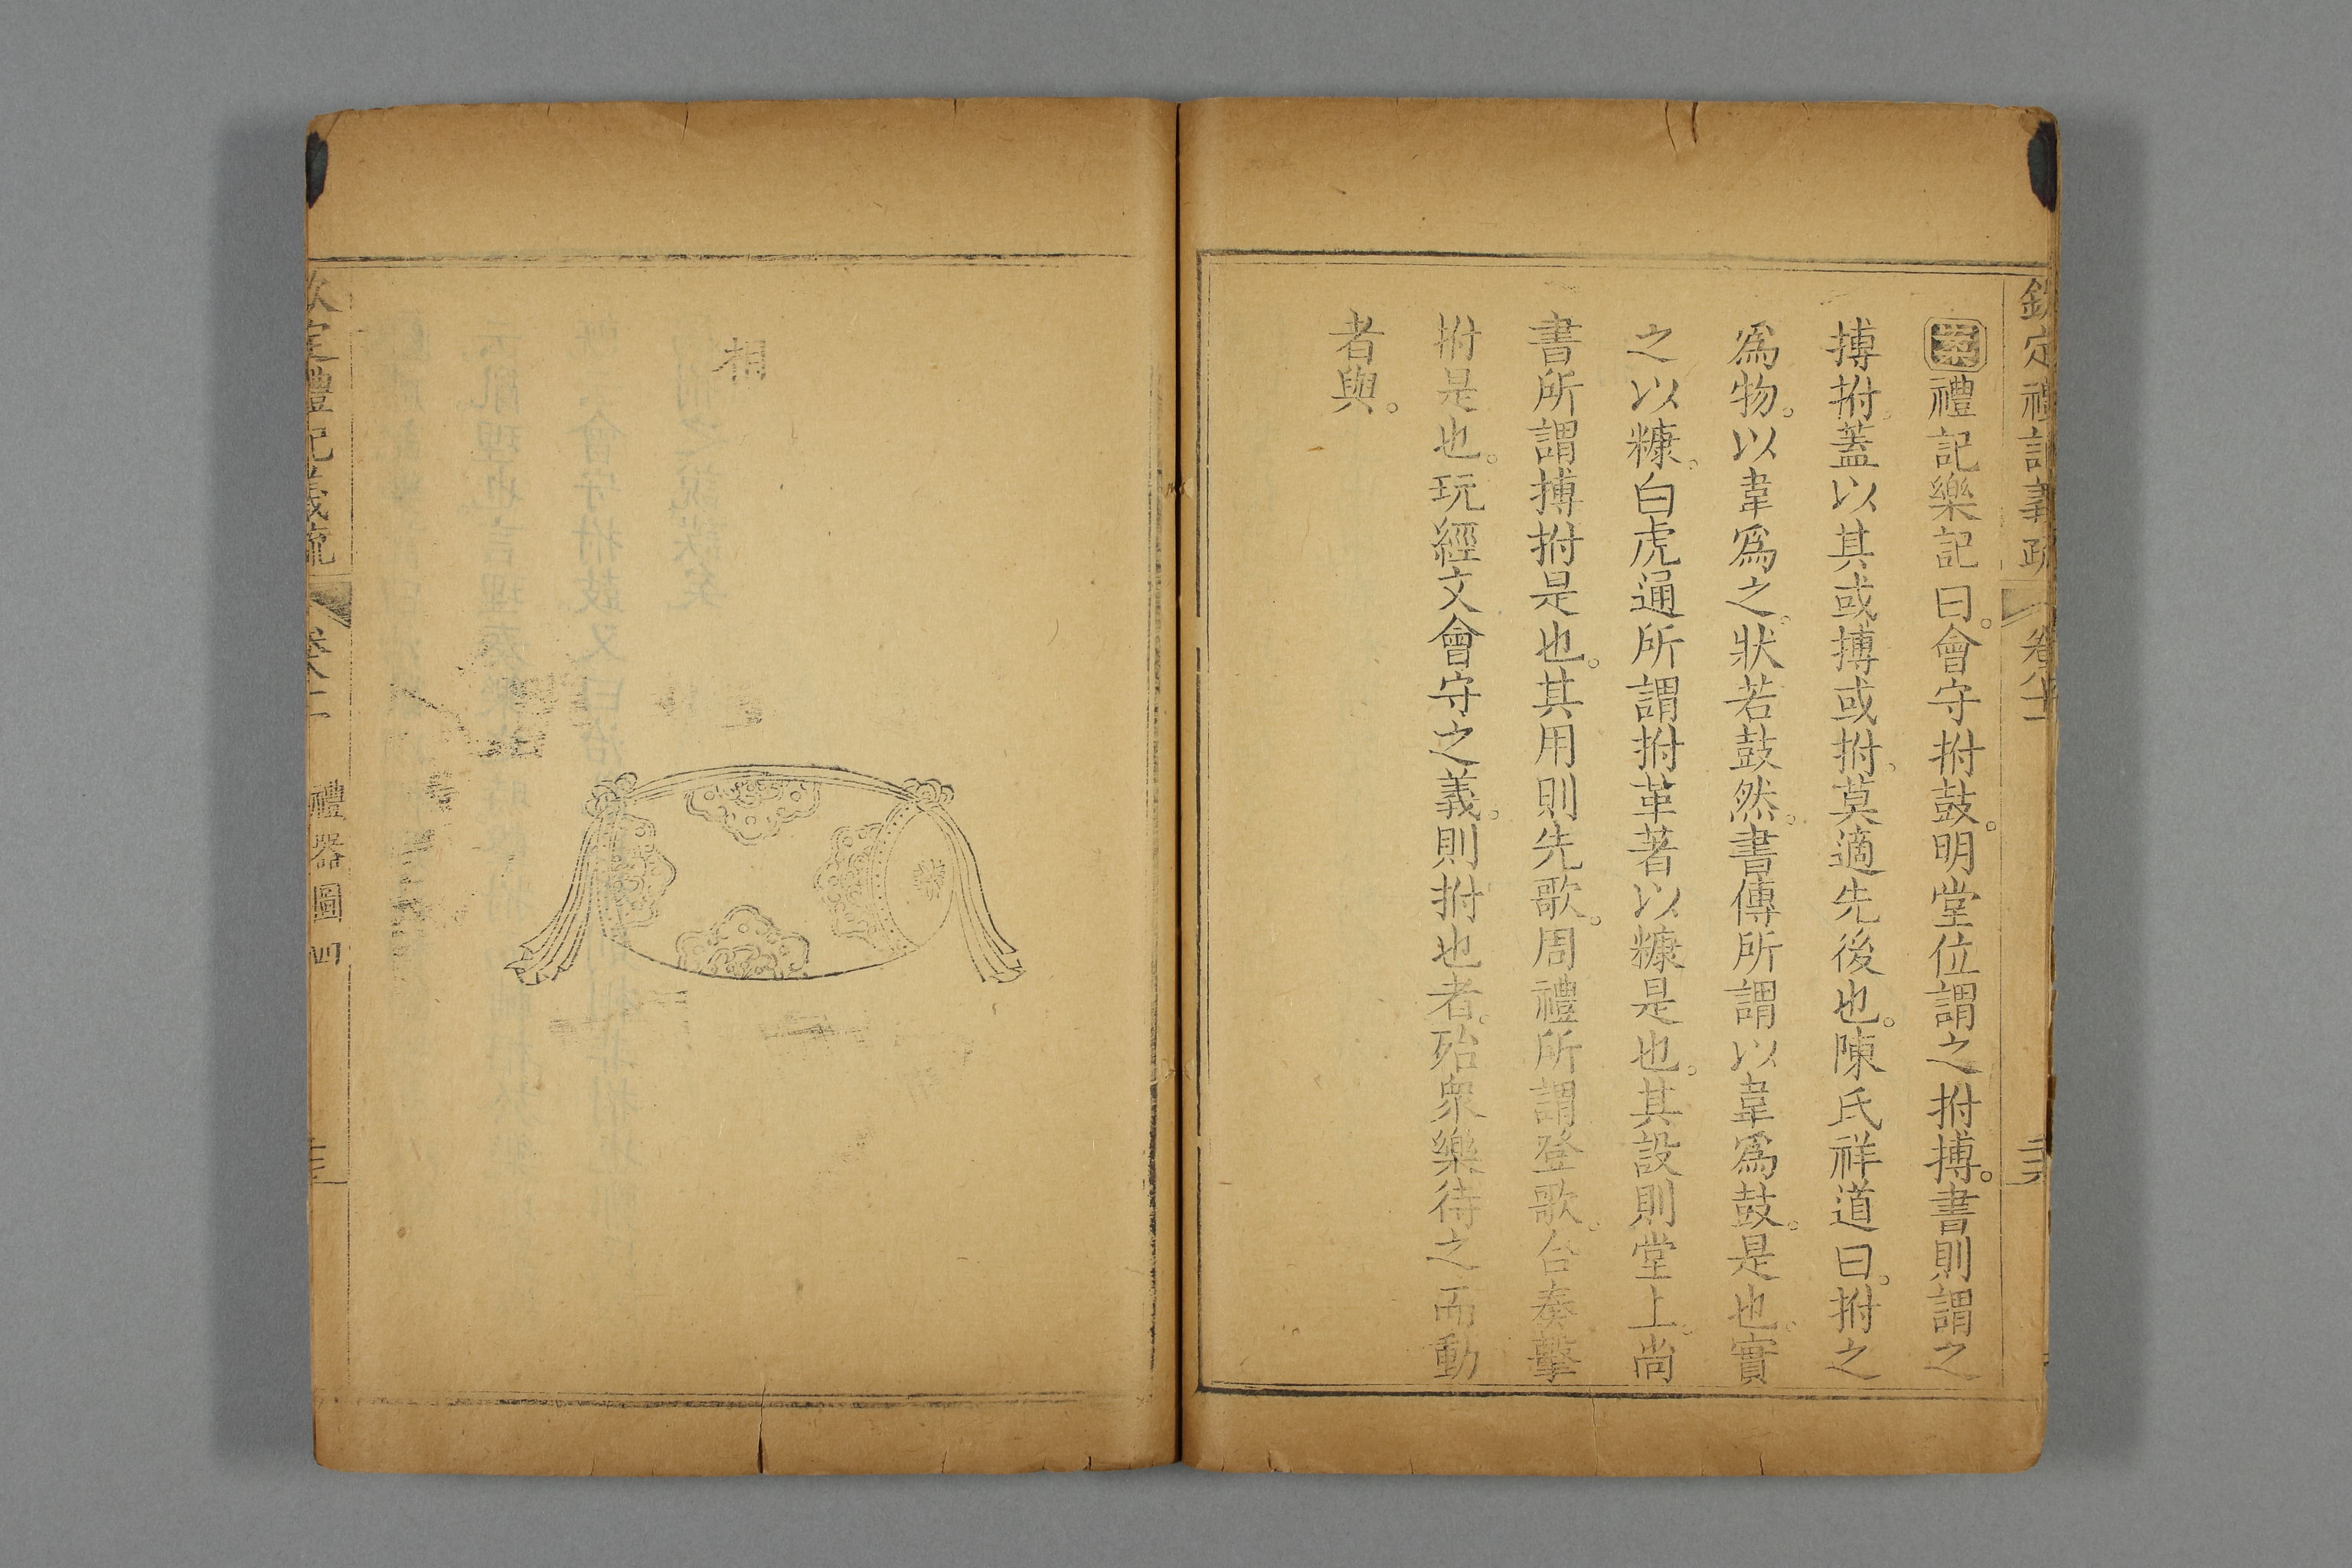 欽定禮記義疏 卷八十二
禮記樂記曰。會守拊鼓。明堂位謂之拊搏。書則謂之
搏拊。蓋以其或搏或拊。莫適先後也。陳氏祥道曰。拊之
爲物。以韋爲之。狀若鼓然。書傳所謂以韋爲鼓。是也。實
之以糠。白虎通所謂拊革著以糠是也。其設則堂上。尚
書所謂搏拊是也。其用則先歌。周禮所謂登歌。合奏擊
拊是也。玩經文會守之義。則拊也者。殆衆樂待之而動
者與。
相
定禮記義疏
禮器圖四